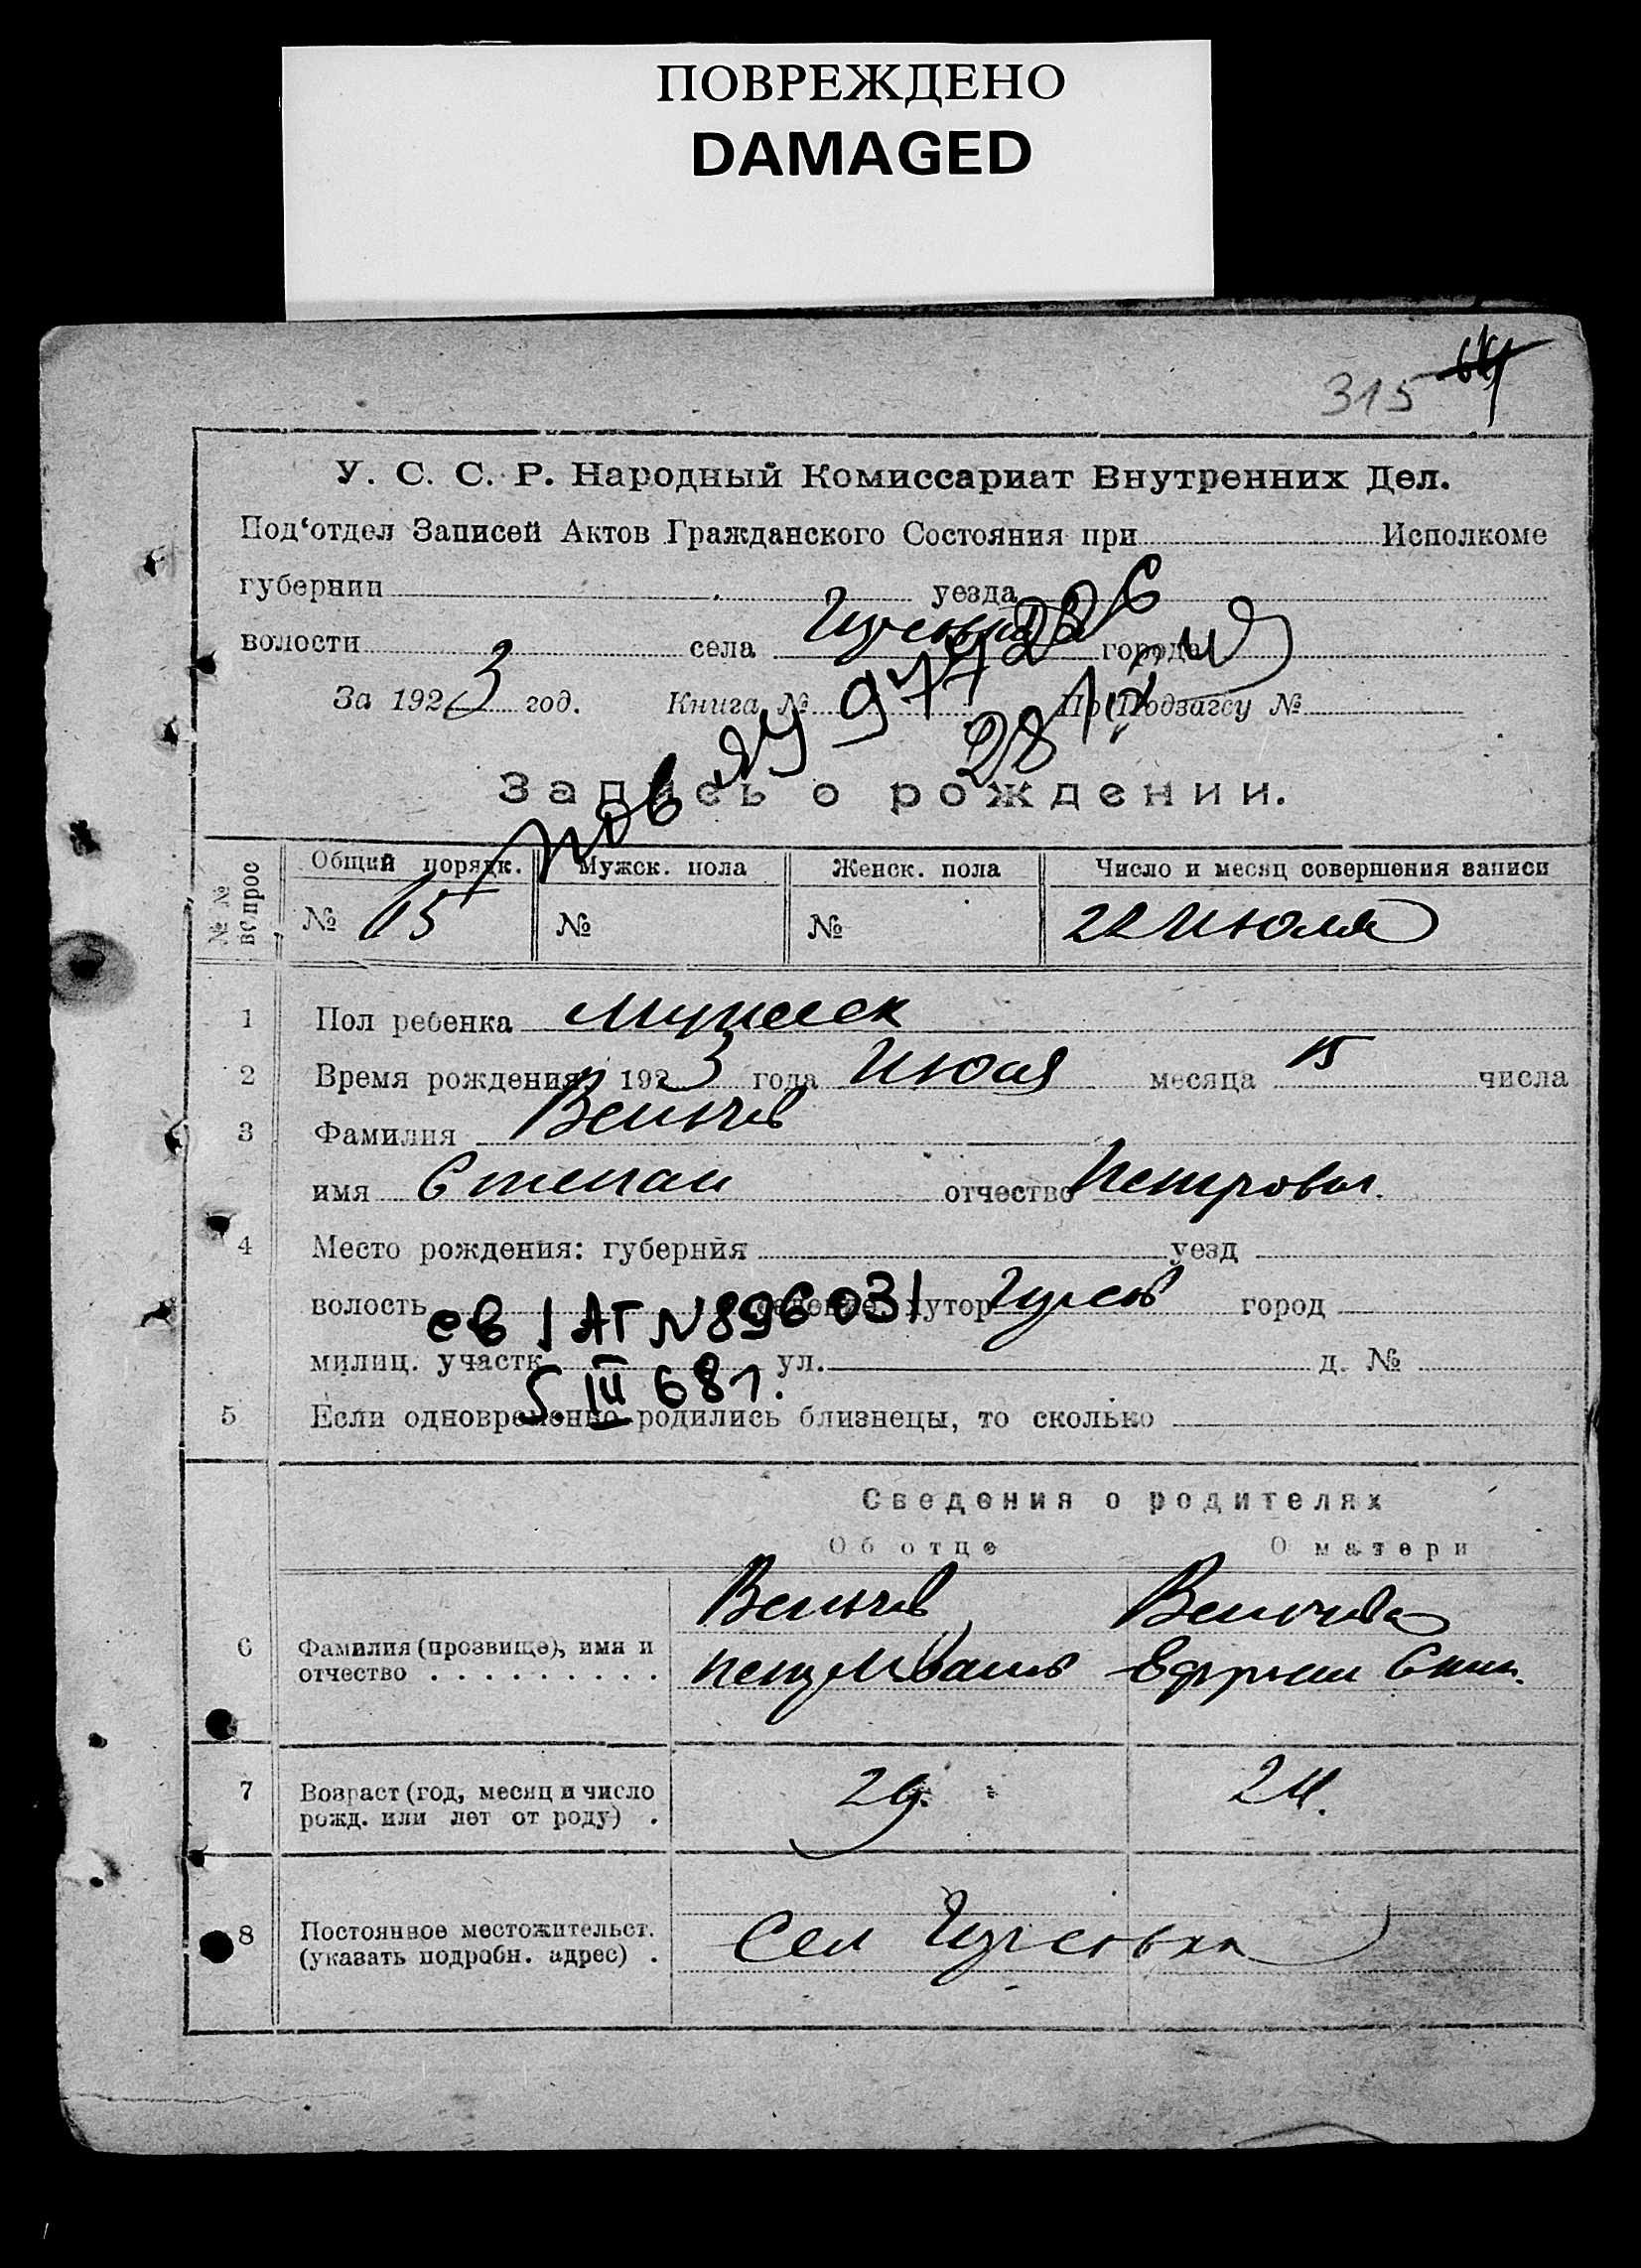 ПОВРЕЖДЕНО
DAMAGED
315
У. С. С. Р. Народный Комиссариат Внутренних Дел.
Под‘отдел Записей Актов Гражданского Состояния при Исполкоме
губернии уезда
волости села города
За 1923 год. Книга № По Подзагсу №
28
Запись о рождении.
№№ вопрос Общий порядк. Мужск. пола Женск. пола Число и месяц совершения записи
№ 65 № № 22 Июля
1 Пол ребенка Мужеск
2 Время рождения: 1923 года Июля месяца 15 числа
3 Фамилия
имя Степан отчество Петровъ.
4 Место рождения: губерния уезд
волость селение, хутор город
св I АГ N 896031
милиц. участк. ул. д. №
5. III 68 г.
5 Если одновременно родились близнецы, то сколько
Сведения о родителях
Об отце О матери
6 Фамилия (прозвище), имя и
отчество . . . . . . . . .
7 Возраст (год, месяц и число 29. 24.
рожд. или лет от роду) .
8 Постоянное местожительст. Сел
(указать подробн. адрес) .